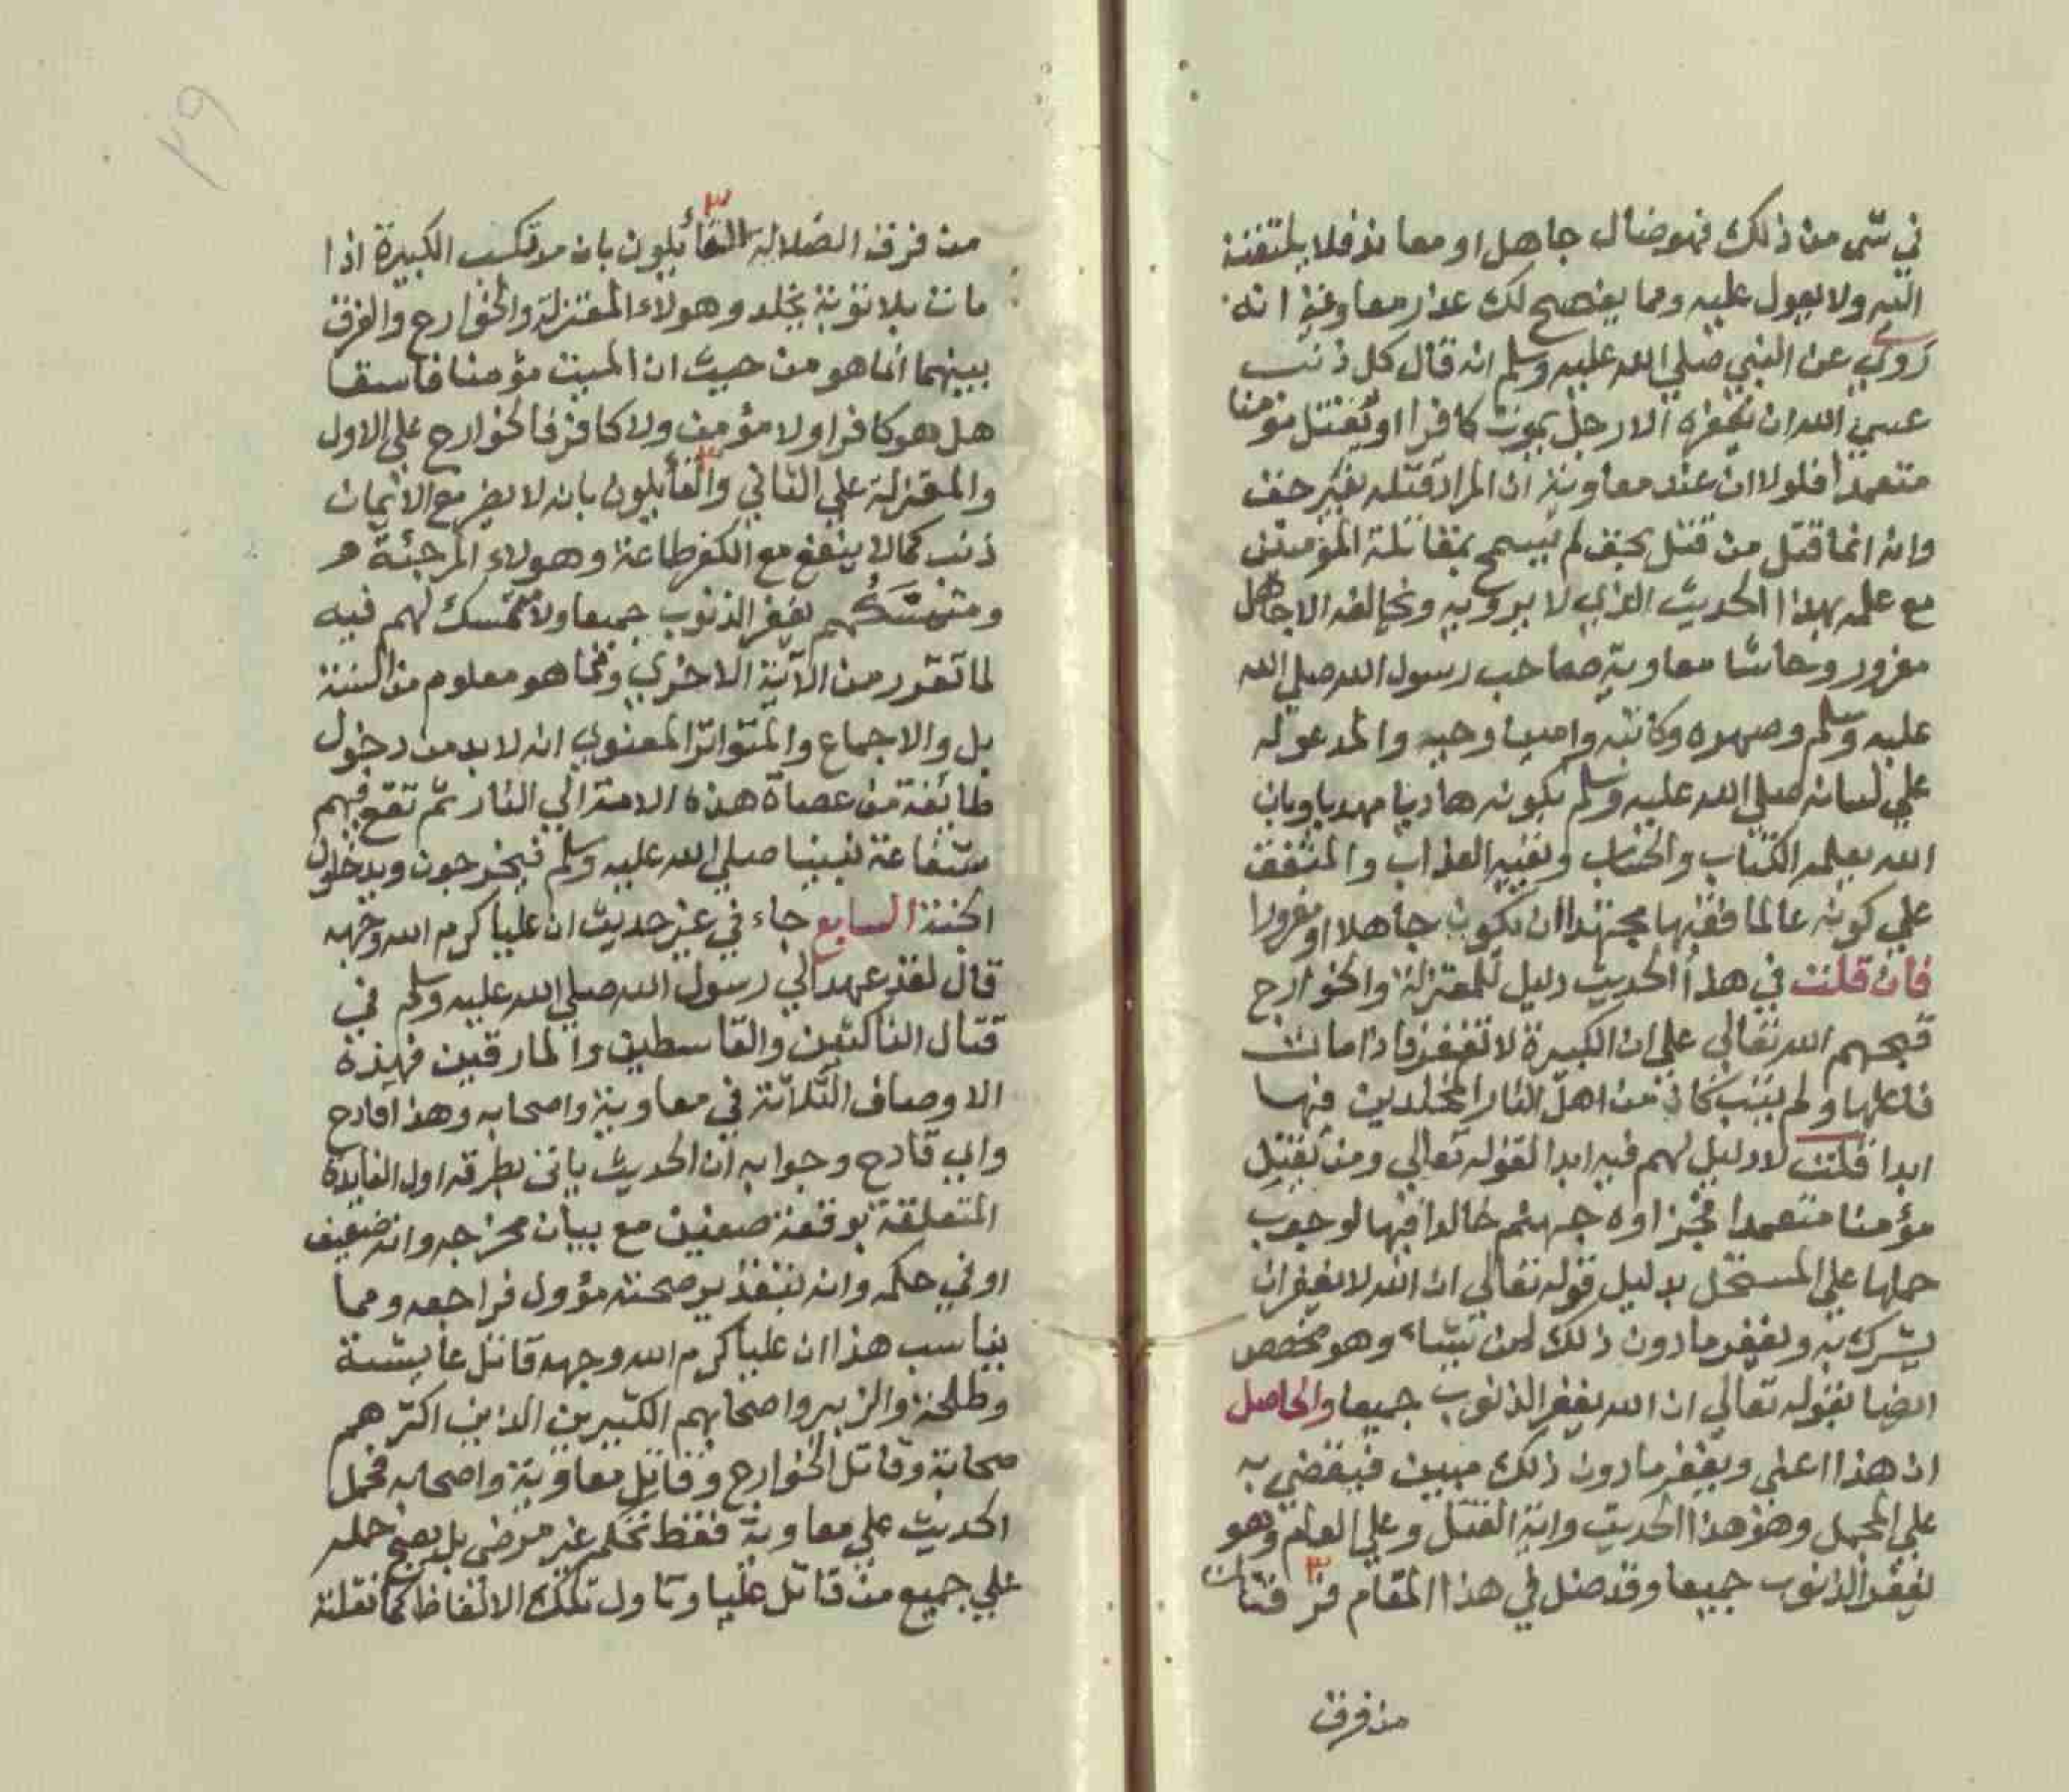 في شي من ذلك فهو ضال جاهل او معاند فلا يلتفت
اليه ولا يعول عليه ومما يفصح لك عذر معاوية انه
روي عن النبي صلي الله عليه وسلم انه قال كل ذنب
عسي الله ان يغفره الا رجل يموت كافرا او يقتل مؤمنا
متعمدا فلولا ان عند معاوية ان المراد قتله بغير حق
وانه انما قتل من قتل بحق لم يسمح بمقاتلة المؤمنين
مع علمه بهذا الحديث الذي لا يرويه ويخالفه الا جاهل
مغرور وحاشا معاوية صاحب رسول الله صلي الله
عليه وسلم وصهره وكاتبه وامين وحيه والمدعو له
علي لسانه صلي الله عليه وسلم بكونه هاديا مهديا وبان
الله يعلمه الكتاب والحساب ويقيه العذاب والمتفق
علي كونه عالما فقيها مجتهدا ان يكون جاهلا او مغرورا
فان قلت في هذا الحديث دليل للمعتزلة والخوارج
قبحهم الله تعالي علي ان الكبيرة لا تغفر فاذا مات
فاعلها ولم يتب كان من اهل النار المخلدين فيها
ابدا قلت لا دليل لهم فيه ابدا لقوله تعالي ومن يقتل
مؤمنا متعمدا فجزاوه جهنم خالدا فيها لوجوب
حملها علي المستحل بدليل قوله تعالي ان الله لا يغفر ان
يشرك به ويغفر ما دون ذلك لمن يشاء وهو مخصص
ايضا لقوله تعالي ان الله يغفر الذنوب جميعا والحاصل
ان هذا اعني ويغفر ما دون ذلك مبين فيقضي به
علي المجمل وهو هذا الحديث واية القتل وعلي العام وهو
يغفر الذنوب جميعا وقد ضل في هذا المقام فرقتان
من فرق
٢٩
من فرق الضلالة القائلون بان مرتكب الكبيرة اذا
مات بلا توبة يخلد وهولاء المعتزلة والخوارج والفرق
بينهما انما هو من حيث ان الميت مؤمنا فاسقا
هل هو كافر او لا مؤمن ولا كافر فالخوارج علي الاول
والمعتزلة علي الثاني والقائلون بانه لا يضر مع الايمان
ذنب كما لا ينفع مع الكفر طاعة وهولاء المرجئة هم
ومتمسكهم يغفر الذنوب جميعا ولا متمسك لهم فيه
لما تقرر من الآية الاخري ومما هو معلوم من السنة
بل والاجماع والمتواتر المعنوي انه لا بد من دخول
طائفة من عصاة هذه الامة الي النار ثم تقع فيهم
شفاعة نبينا صلي الله عليه وسلم فيخرجون ويدخلون
الجنة السابع جاء في غير حديث ان عليا كرم الله وجهه
قال لقد عهد الي رسول الله صلي الله عليه وسلم في
قتال الناكثين والقاسطين والمارقين فهذه
الاوصاف الثلاثة في معاوية واصحابه وهذا قادح
واي قادح وجوابه ان الحديث ياتي بطرقه اول الفايدة
المتعلقة بوقعة صفين مع بيان مخرجه وانه ضعيف
او في حكمه وانه بتقدير صحته مؤول فراجعه ومما
يناسب هذا ان عليا كرم الله وجهه قاتل عايشة
وطلحة والزبير واصحابهم الكثيرين الذين اكثرهم
صحابة وقاتل الخوارج وقاتل معاوية واصحابه فحمل
الحديث علي معاوية فقط تحكم غير مرضي بل يصح حمله
علي جميع من قاتل عليا وتاول تلك الالفاظ كما نقلته